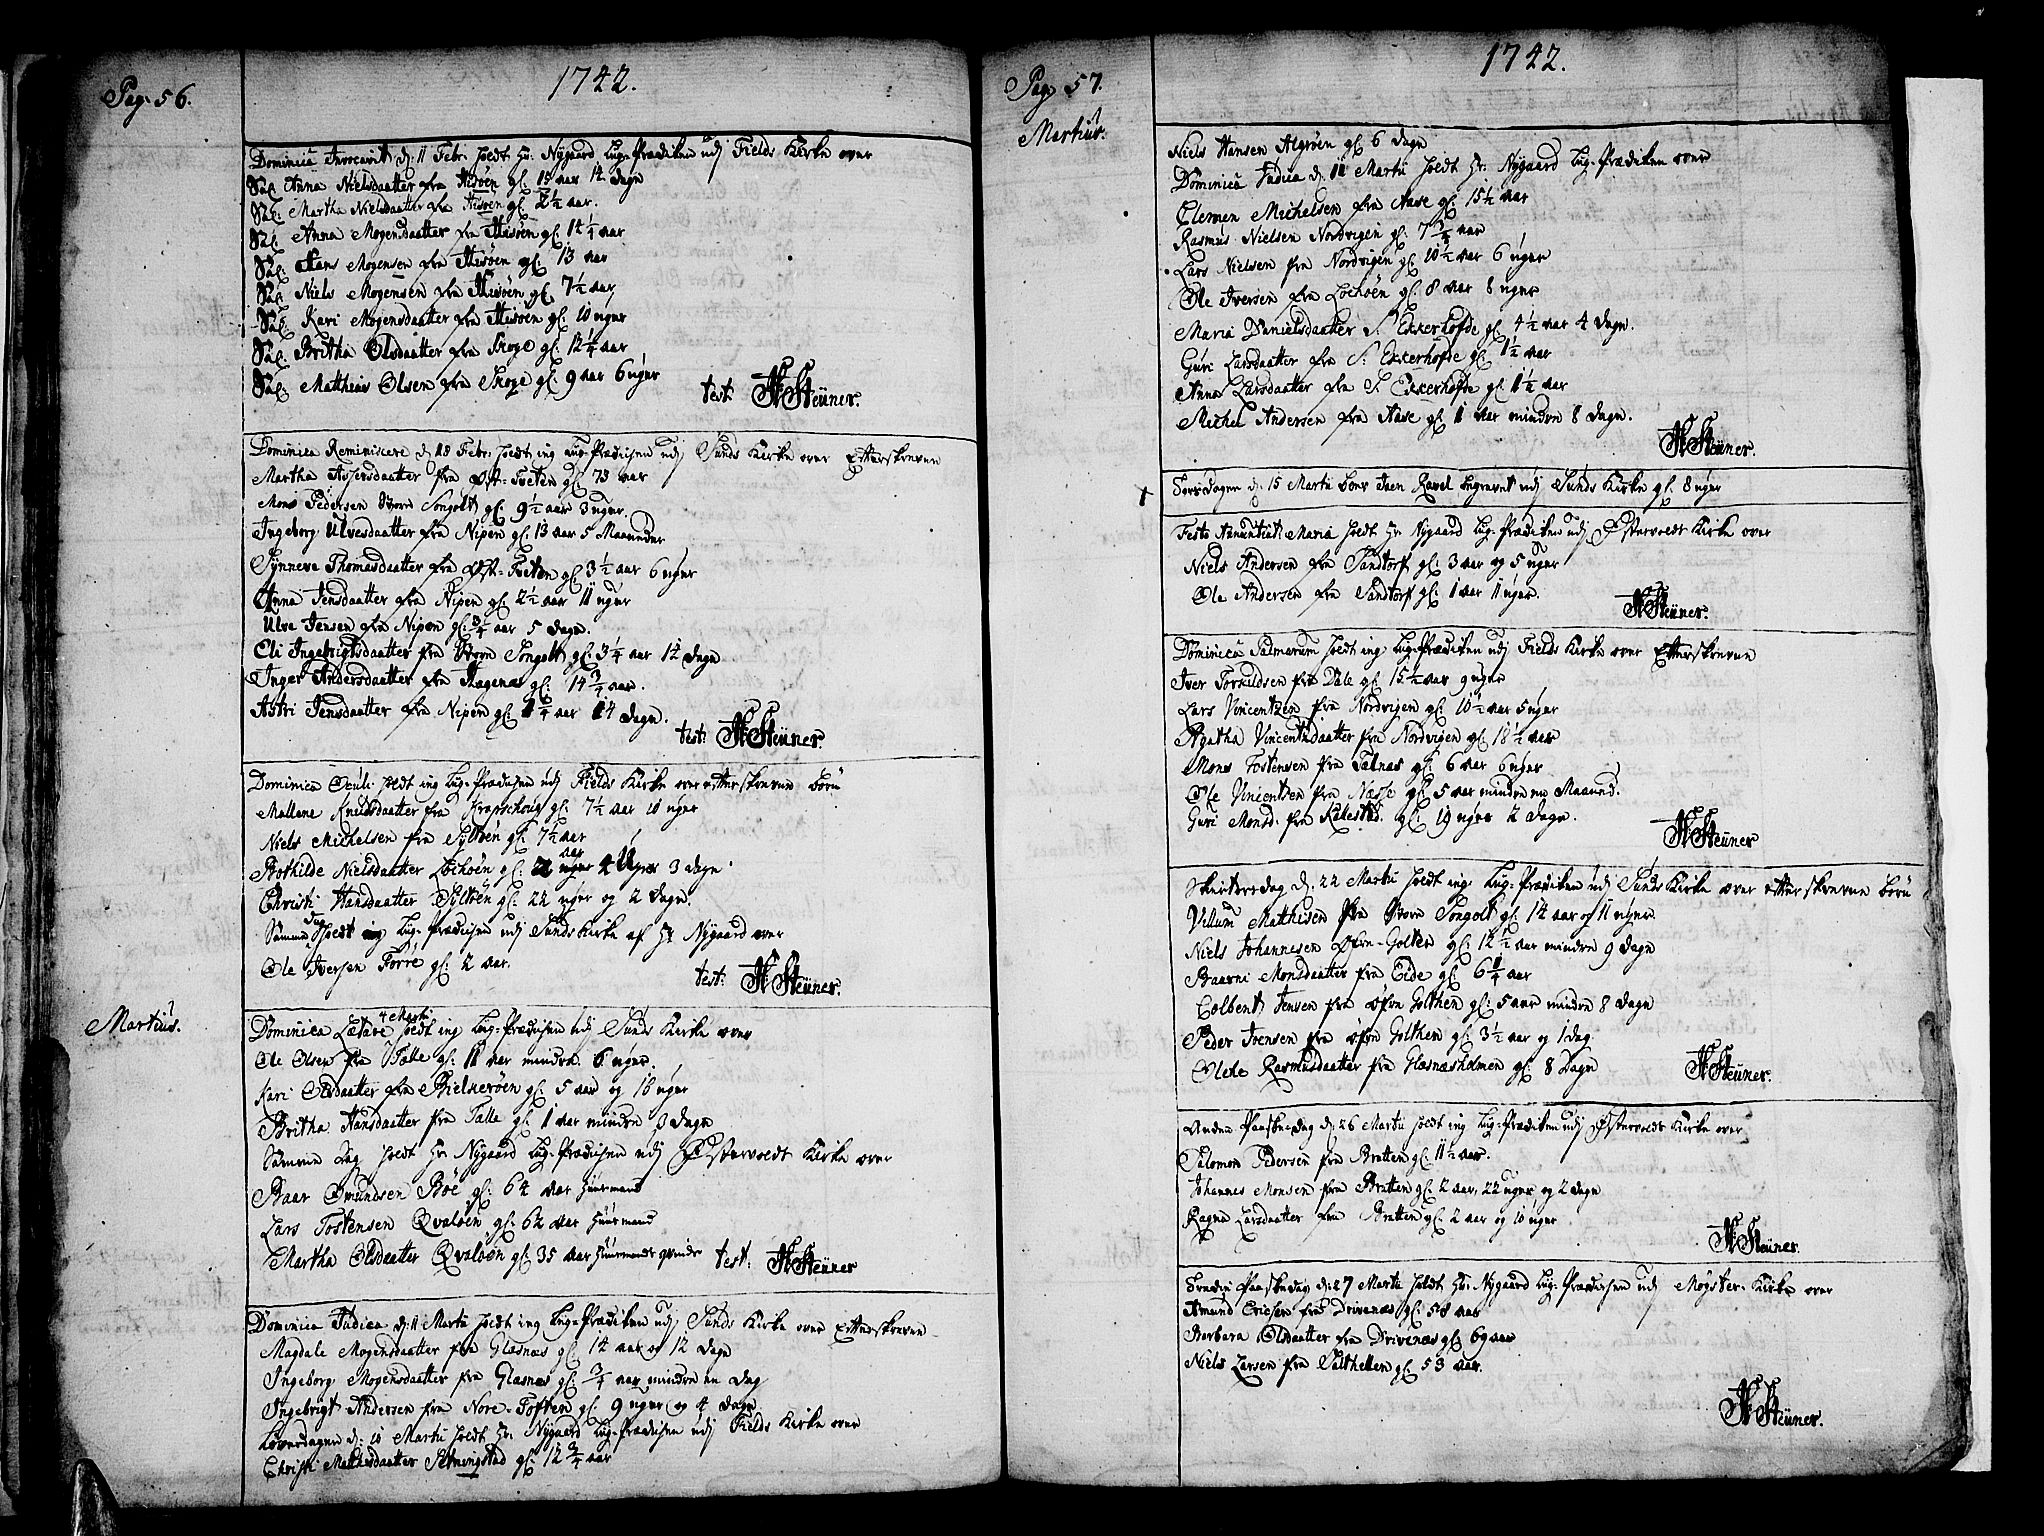 Pag: 56.
1742.
Dominica Invocavit d: 11 Febr: holdt Hr. Nygaard Lig-Prædiken udj Fields Kirke over
Sal. Anna Nielsdaatter fra Hisöen gl. 15 aar 14 dagn
Sal: Martha Nielsdaatter fra Hisöen gl. 2½ aar.
Sal. Anna Mogensdaatter fra Hisöen gl: 14¼ aar.
Sal. Hans Mogensen fra Hisöen gl. 13 aar
Sal. Niels Mogensen fra Hisöen gl. 7½ aar
Sal. Kari Mogensdaatter fra Hisöen gl. 10 uger
Sal. Britha Olsdaatter fra Skoge gl. 12¼ aar
Sal. Matthias Olsen fra Skoge gl: 9 aar 6 uger
test: H: Steüner.
Dominica Reminiscere d: 18 Febr: holdt ieg Lig-Prædiken udj Sunds Kirke over Efterskrevne
Martha Assersdaatter fra Øst-Tveten gl. 73 aar
Mons Pedersen Store Songolt gl. 9½ aar 3 uger.
Ingeborg Ulvesdaatter fra Nipen gl. 13 aar 5 Maaneder
Synneva Thomasdaatter fra Øst-Tveten gl. 3½ aar 6 uger
Anna Jensdaatter fra Nipen gl: 2½ aar 11 uger
Ulve Jensen fra Nipen gl: ¾ aar 5 dagn.
Eli Ingebrigtsdaatter fra Store Songolt gl. 3¼ aar 14 dagn
Inger Andersdaatter fra Hagenæs gl: 14¾ aar.
Astri Jensdaatter fra Nipen gl. 1¼ aar 14 dagn.
test: H: Steüner.
Dominica Oculi holdt ieg Lig-Prædiken udj Fields Kirke over efterskrevne börn
Mallene Knudsdaatter fra Krapschoug gl: 7½ aar 10 uger
Niels Michelsen fra Syltöen gl: 7½ aar
Bothilde Nielsdaatter Lochöen gl: 2 aar 4 Uger 3 dagn
Christi Hansdaatter Syltöen gl: 22 uger og 2 dagn.
Samme dag holdt Lig-Prædiken udj Sunds Kirke af Hr Nygaard over
Ole Iversen Forre gl: 2 aar.
test: H: Steüner.
Martius.
Dominica Lætare 4 Marti holdt ieg Lig-Prædiken udj Sunds Kirke over
Ole Olsen fra Talle gl: 11 aar mindre 6 uger.
Kari Olsdaatter fra Bielkeröen gl: 5 aar og 16 uger
Britha Hansdaatter fra Talle gl. 1 aar mindre 3 dagn
Samme Dag holdt Hr Nygaard Lig-Prædiken udj Østervoldt Kirke over
Baar Omundsen Böe gl. 64 aar huusmand
Lars Tostensen Qvalöen gl: 62 aar huusmand
Martha Olsdaatter Qvalöen gl: 35 aar huusmands qvinde
test: H: Steüner
Dominica Judica d: 11 Martii holdt ieg Lig-Prædiken udj Sunds Kirke over Efterskrevne
Magdale Mogensdaatter fra Glæsnæs gl: 14 aar og 12 dagn
Ingeborg Mogensdaatter fra Glasnæs gl: ¾ aar mindre en dag
Ingebrigt Andersen fra Nore-Toften gl: 9 uger og 4 dagn
Löverdagen d: 10 Martii holdt Hr. Nygaard Lig-Prædiken udj Fields Kirke over
Christi Mathisdaatter gl. 12¾ aar
Pag 57.
Martius.
1742.
Niels Hansen Algröen gl. 6 dagn
Dominica Judica d. 11 Martii holdt Hr. Nygaard Lig-Prædiken over
Clemen Michelsen fra Aase gl. 15½ aar
Rasmus Nielsen Nordvigen gl: 7¾ aar
Lars Nielsen fra Nordvigen gl. 10½ aar 6 uger
Ole Iversen fra Lochöen gl. 8 aar 8 uger
Maria Danielsdaatter S. Ekkerhofde gl. 4½ aar 4 dagn.
Guri Larsdaatter fra S: Ekkerhofde gl: 1½ aar
Anna Larsdaatter fra S. Ekkerhofde gl 1½ aar
Michel Andersen fra Aase gl. 1 aar mindre 8 dagn.
H: Steüner.
Torsdagen d: 15 Martii blev Iaen Ravel begravet udj Sunds Kirke gl. 8 uger
Festo Annuntiat: Maria holdt Hr Nygaard Lig-Prædiken udj Østervoldt Kirke over
Niels Andersen fra Sandtorf gl: 3 aar og 5 uger
Ole Andersen fra Sandtorf gl: 1 aar 11 uger.
H: Steüner.
Dominica Palmarum holdt ieg Lig-Prædiken udj Fields Kirke over Efterskrevne
Iver Torkildsen fra Dale gl: 15½ aar 9 uger
Lars Vincentzen fra Nordvigen gl: 10½ aar 5 uger
Agatha Vincentzdaatter fra Nordvigen gl: 18½ aar
Mons Tostensen fra Talnæs gl. 6 aar 6 uger
Ole Vincentsen fra Næsse gl: 5 aar mindre en Maaned.
Guri Monsd: fra Rakestad gl. 19 uger 2 dagn.
H: Steüner
Skiertorsdag d. 22 Martii holdt ieg Lig-Prædiken udj Sunds Kirke over efterskrevne börn
Villum Mathisen fra Store Songolt gl. 14 aar og 11 uger
Niels Johannesen Øfre-Golten gl: 12½ aar mindre 9 dagn
Baarni Monsdaatter fra Eide gl: 6¼ aar
Colbent Jensen fra öfre Golthen gl: 5 aar mindre 8 dagn
Peder Ivensen fra öfre Golthen gl: 3½ aar og 1 dag.
Olche Rasmusdaatter fra Glæsnæsholmen gl: 8 Dagn
H: Steüner.
Anden Paaskedag d. 26 Martii holdt ieg Lig-Prædiken udj Østervoldt Kirke over
Salomon Pedersen fra Bratten gl. 11½ aar.
Johannes Monsen fra Bratten gl: 2 aar, 22 uger og 2 dagn
Ragna Larsdaatter fra Bratten gl: 2 aar og 10 uger
H: Steüner.
Tredie Paaskedag d: 27 Martii holdt Hr. Nygaard Lig-Prædiken udj Mögster-Kirke over
Amund Ericsen fra Drivenæs gl: 58 aar
Barbara Olsdaatter fra Drivenæs gl: 69 aar
Niels Larsen fra Salthellen gl. 53 aar.
H: Steüner.